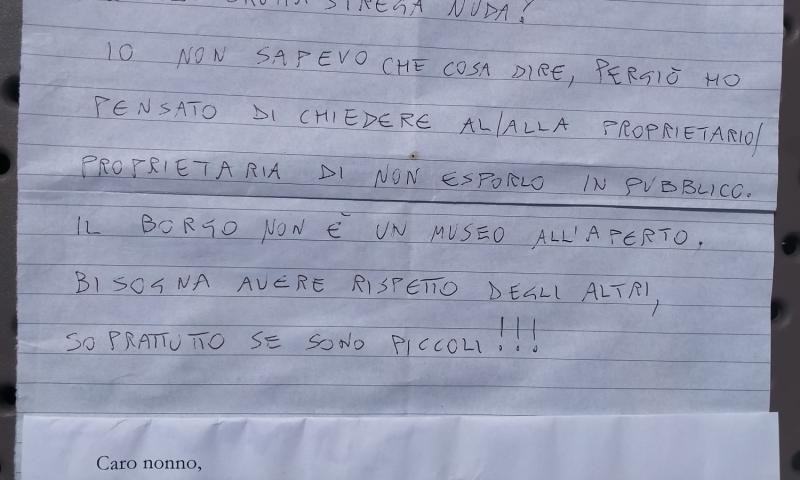 STREGA NUDA!
IO NON SAPEVO CHE COSA DIRE, PERCIÒ HO
PENSATO DI CHIEDERE AL/ALLA PROPRIETARIO/
PROPRIETARIA DI NON ESPORLO IN PUBBLICO.
IL BORGO NON È UN MUSEO ALL'APERTO.
BISOGNA AVERE RISPETTO DEGLI ALTRI,
SOPRATTUTTO SE SONO PICCOLI!!!
Caro nonno,